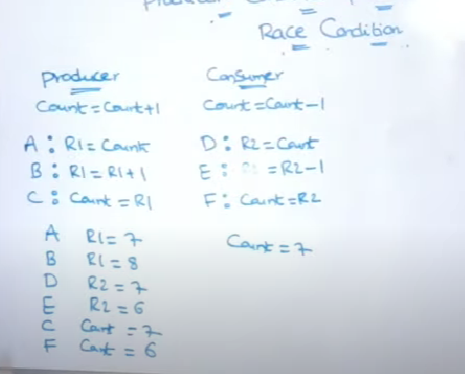 Race Condition
Producer
Count = Count+1
A : R1 = Count
B : R1 = R1+1
C : Count = R1
Consumer
Count = Count-1
D : R2 = Count
E : = R2-1
F : Count = R2
A R1 = 7
B R1 = 8
D R2 = 7
E R2 = 6
C Count = 7
F Count = 6
Count = 7